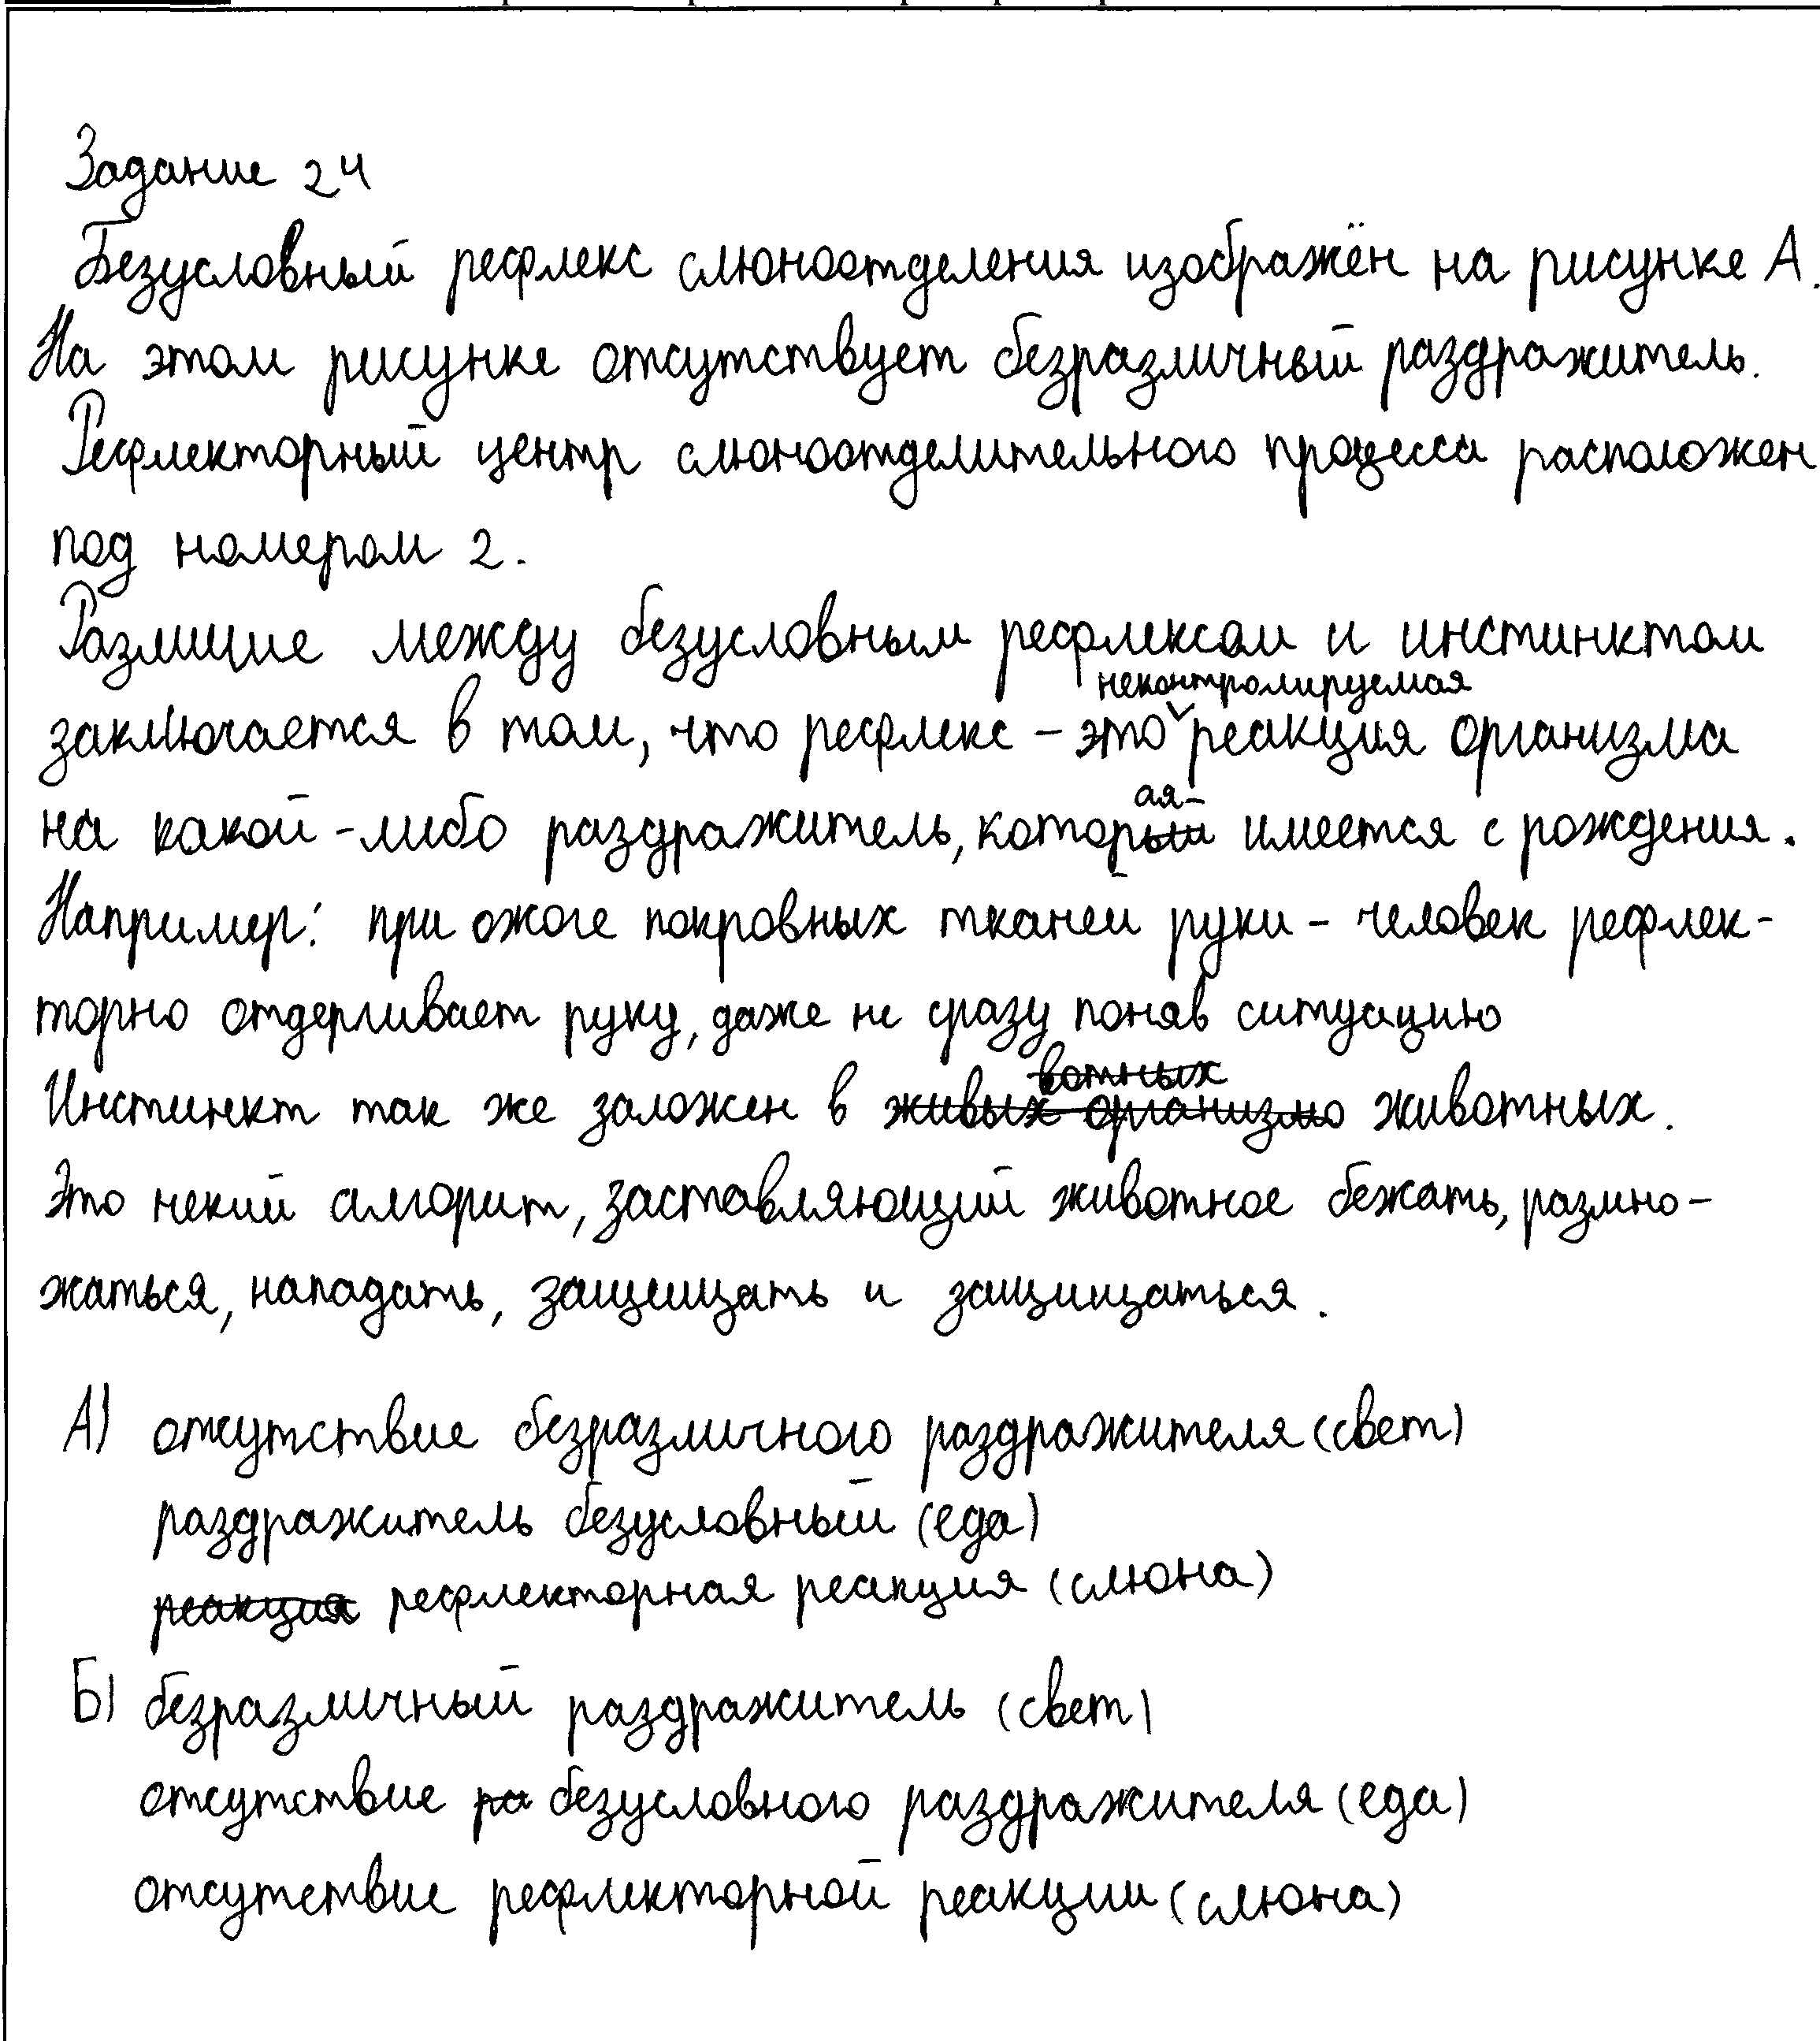 Задание 24
Безусловный рефлекс слюноотделения изображён на рисунке А.
На этом рисунке отсутствует безразличный раздражитель.
Рефлекторный центр слюноотделительного процесса расположен
под номером 2.
Различие между безусловным рефлексом и инстинктом
заключается в том, что рефлекс – это неконтролируемая реакция организма
на какой-либо раздражитель, которая имеется с рождения.
Например: при ожоге покровных тканей руки – человек рефлек-
торно отдергивает руку, даже не сразу поняв ситуацию
Инстинкт так же заложен в животных.
Это некий алгорит, заставляющий животное бежать, размно-
жаться, нападать, защищать и защищаться.
А) отсутствие безразличного раздражителя (свет)
раздражитель безусловный (еда)
рефлекторная реакция (слюна)
Б) безразличный раздражитель (свет)
отсутствие безусловного раздражителя (еда)
отсутствие рефлекторной реакции (слюна)